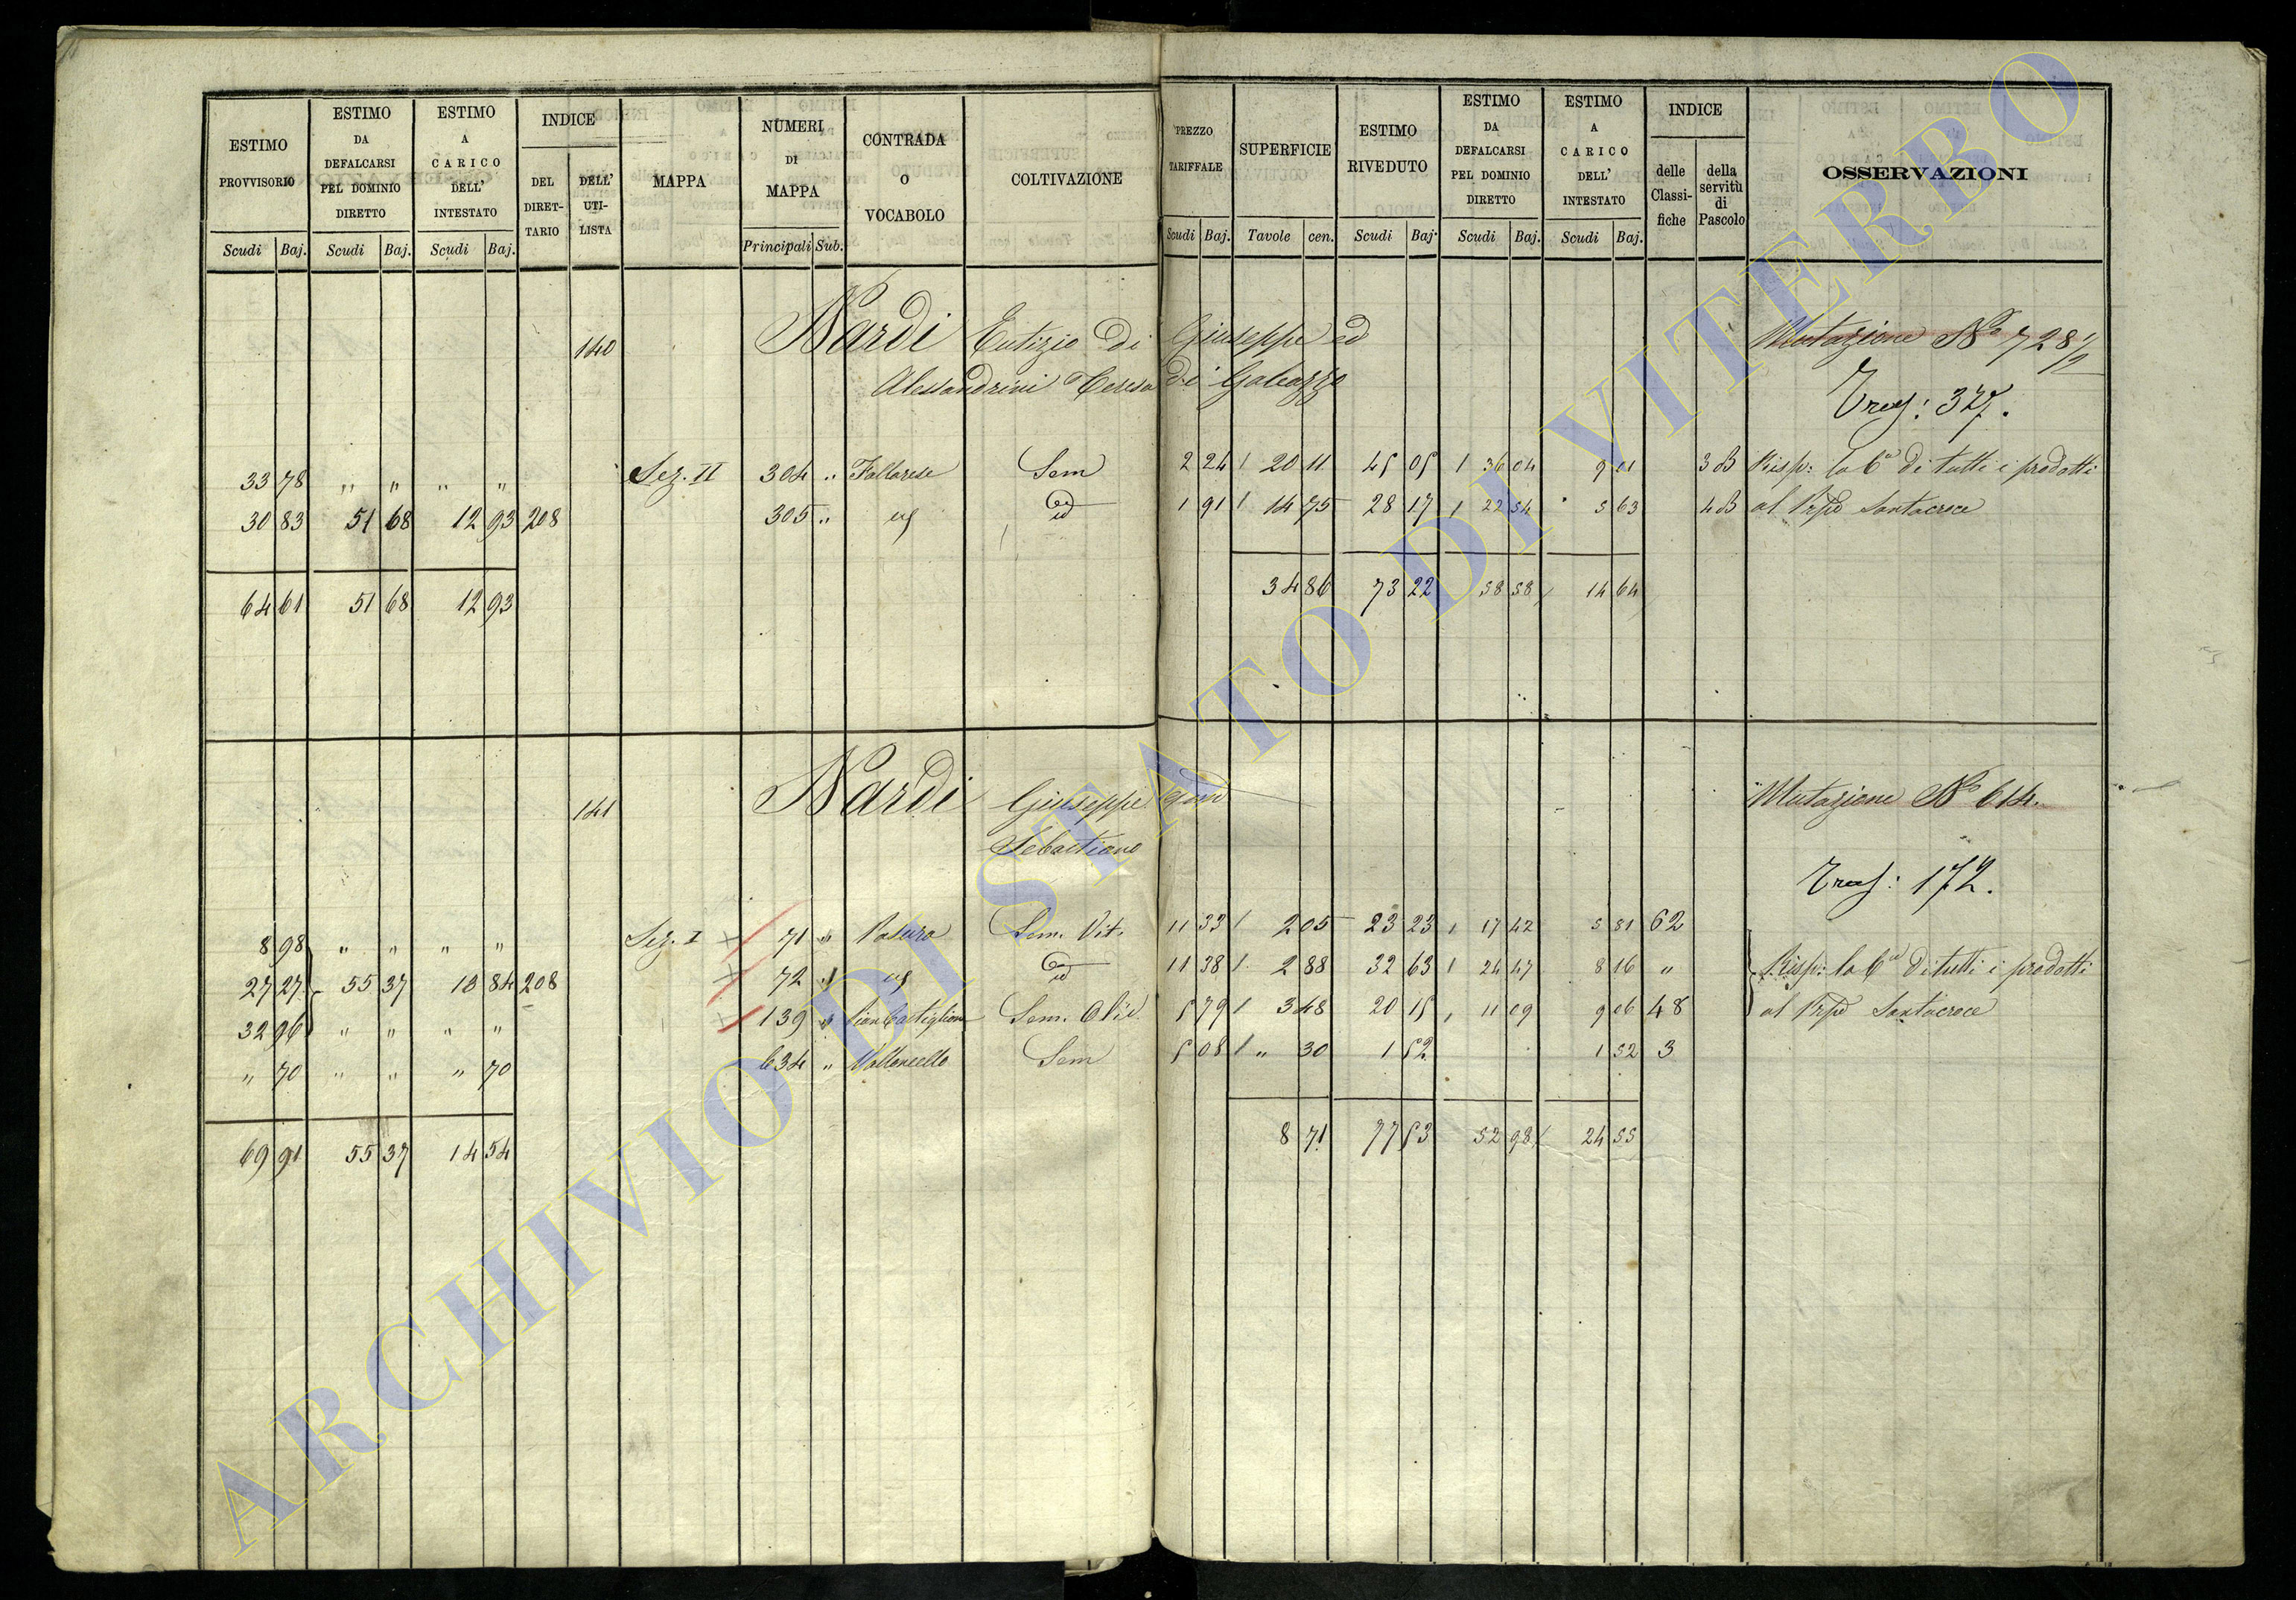 ESTIMO PROVVISORIO | ESTIMO DA DEFALCARSI PEL DOMINIO DIRETTO | ESTIMO A CARICO DELL' INTESTATO | INDICE DEL DIRET-TARIO | DELL' UTI-LISTA | MAPPA | NUMERI DI MAPPA | CONTRADA O VOCABOLO | COLTIVAZIONE | PREZZO TARIFFALE | SUPERFICIE | ESTIMO RIVEDUTO | ESTIMO DA DEFALCARSI PEL DOMINIO DIRETTO | ESTIMO A CARICO DELL' INTESTATO | INDICE delle Classi-fiche | della servitù di Pascolo | OSSERVAZIONI
Scudi Baj. Scudi Baj. Scudi Baj. Principali Sub. Scudi Baj. Tavole cen. Scudi Baj. Scudi Baj. Scudi Baj.
140 Nardi Eutizio di Giuseppe ed Mutazione N° 728 1/2
Alessandrini Teresa di Galeazzo
Trasf: 327.
33 78 " " " " Sez. II 304 " Fallarese Sem 2 24 20 11 45 05 36 04 9 01 3 B Risp: la 6a di tutti i prodotti
30 83 51 68 12 93 208 305 " id 1 91 14 75 28 17 22 54 5 63 4 B al Prpe Santacroce
34 86 73 22 58 58 14 64
64 61 51 68 12 93
141 Nardi Giuseppe qm Mutazione N° 614.
Sebastiano
Trasf: 172.
8 98 " " " " Sez. I 71 " Sem. Vit. 11 33 2 05 23 23 17 42 5 81 62
27 27 55 37 13 84 208 72 " id 11 38 2 88 32 63 24 47 8 16 " Risp: la 6a di tutti i prodotti
32 96 " " " " 139 " Pian Castiglione Sem. Oliv. 5 79 3 48 20 15 11 09 9 06 48 al Prpe Santacroce
" 70 " " " 70 634 " Valloncello Sem 5 08 " 30 1 52 1 52 3
8 71 77 53 52 98 24 55
69 91 55 37 14 54
ARCHIVIO DI STATO DI VITERBO